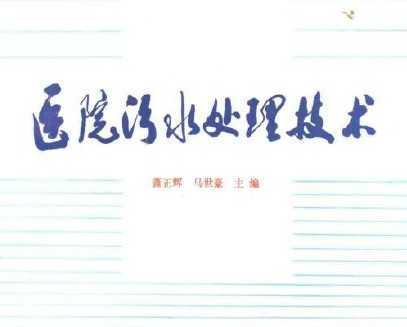 医院污水处理技术
萧正辉 马世豪 主编